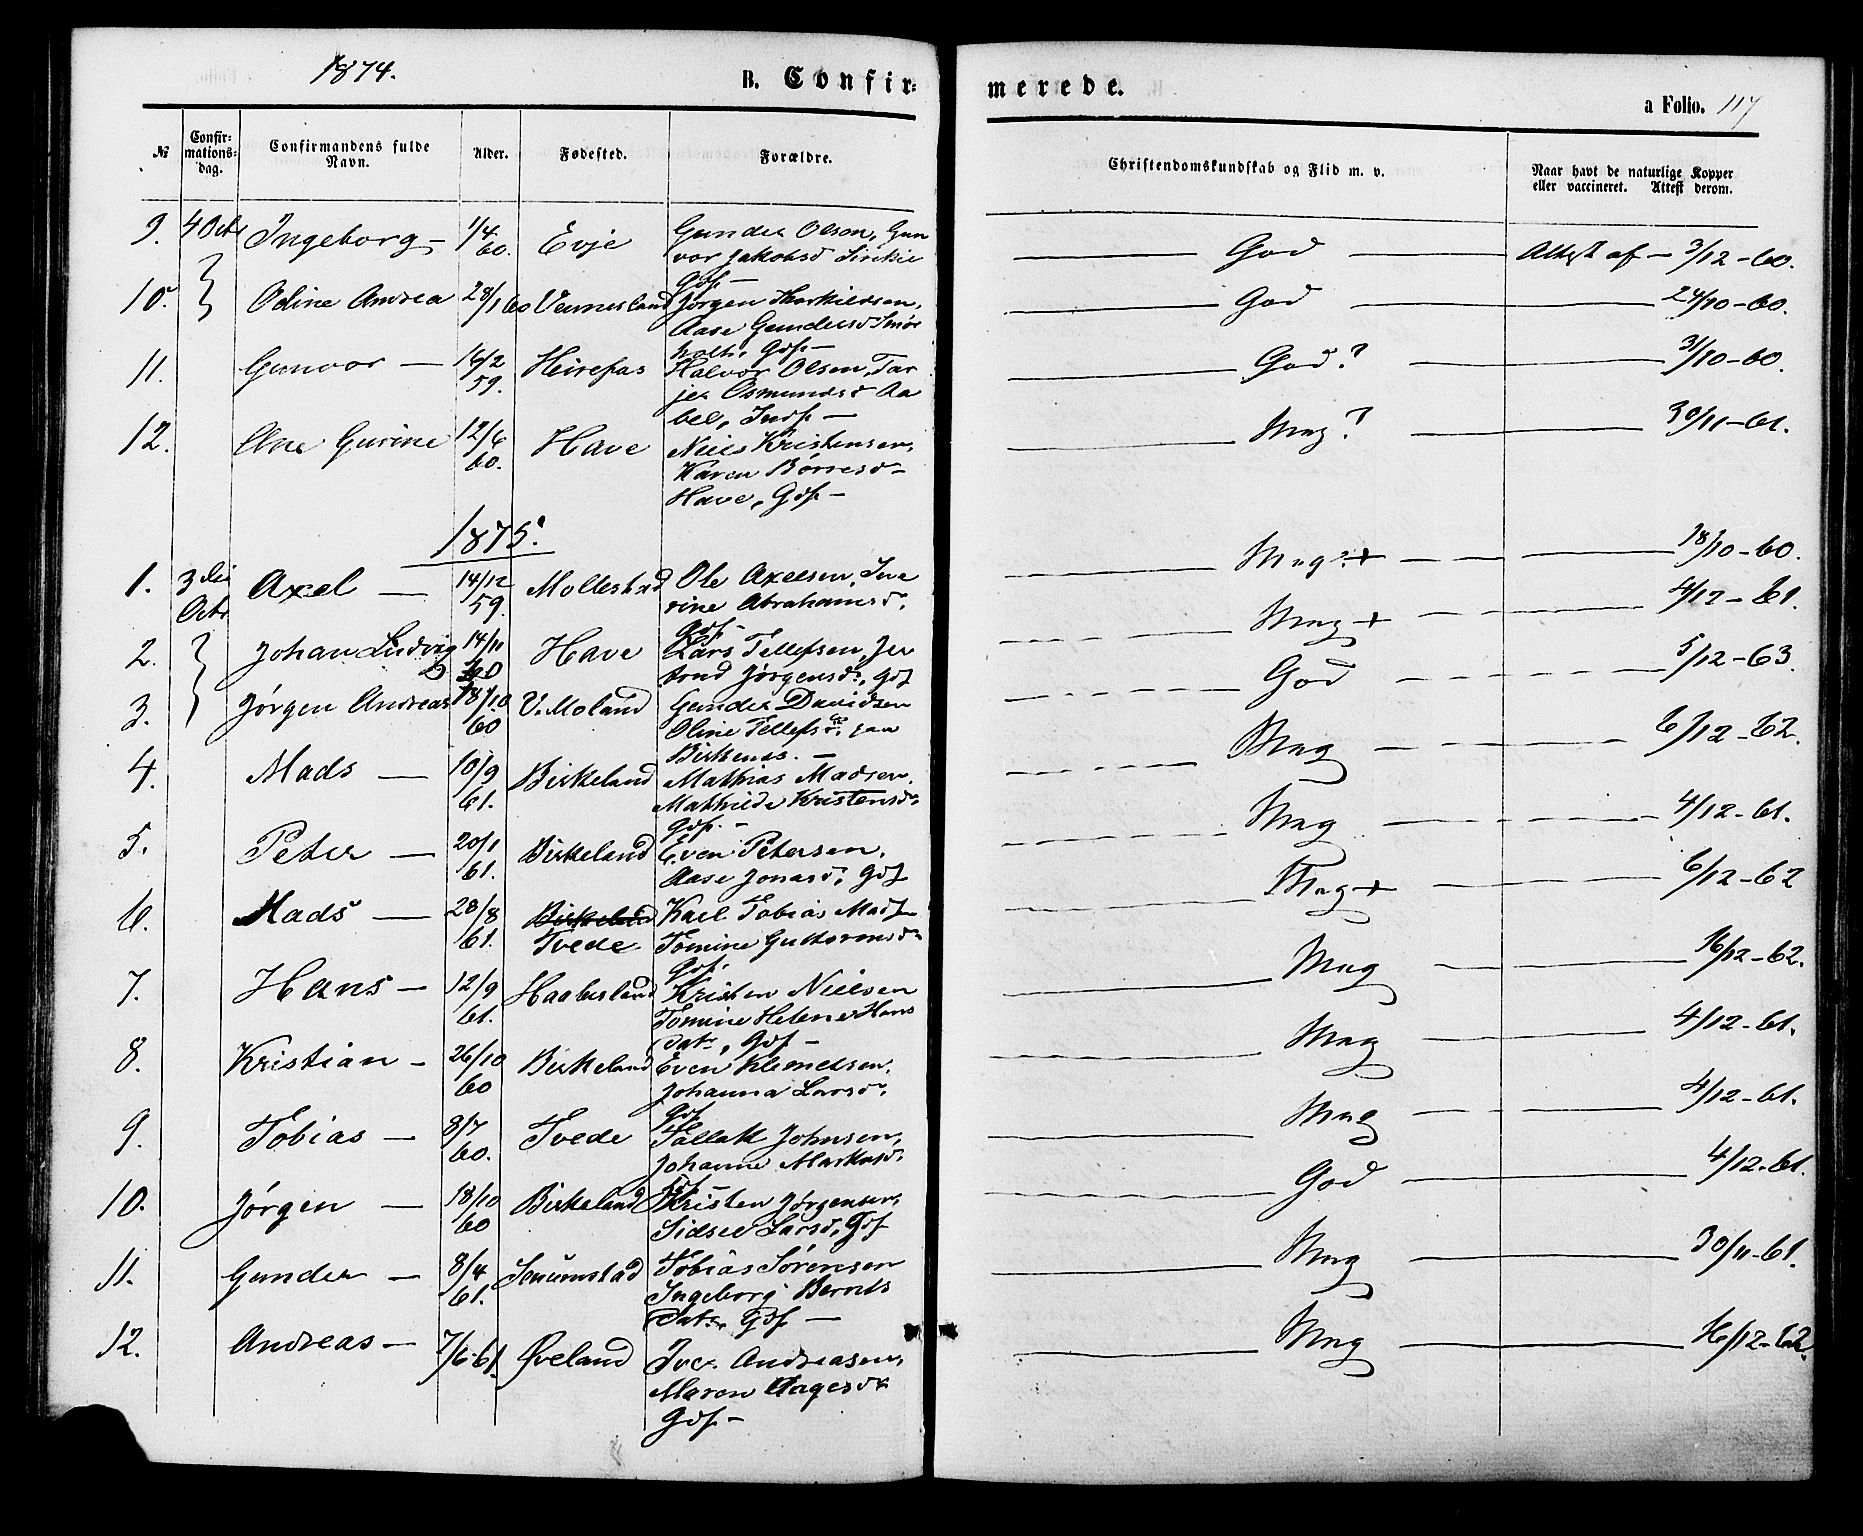 1874.
B. Confir- merede.
a Folio. 117
№ Confir-mations-dag. Confirmandens fulde Navn. Alder. Fødested. Forældre. Christendomskundskab og Flid m. v. Naar havt de naturlige Kopper eller vaccineret. Attest derom.
9. 4 Octr Ingeborg — 1/4 60. Evje Gunder Olsen, Gun
vor Jakobsd
Gdf — God — Attest af — 3/12-60.
10. Odine Andrea 28/1 60 Vennesland Jørgen
Aase Gundersd
Gdf — God — 24/10-60.
11. Gunvor — 16/2 59. Heirefas Halvor Olsen, Tar
jer Osmundsd Aa
bel, Indf — God? — 31/10-60.
12. Ane Gurine 12/6 60. Have Niels Kristensen,
Karen Børresd
Have, Gdf — Mag? — 30/11-61.
1875.
1. 3die Octr Axel — 14/12 59. Mollestad Ole Axelsen, Ine
rine Abrahamsd.
Gdf — Mag?+ — 18/10-60.
2. Johan Ludvig 14/11 60 Have Lars Tellefsen, Jer
trud Jørgensd., Gdf Mag+ — 4/12-61.
3. Jørgen Andreas 18/10 60 V. Moland Gunder Davidsen
Oline Tellefsd.
Birkenæs. — God — 5/12-63.
4. Mads — 10/9 61. Birkeland Mathias Madsen.
Mathilde Kristensd.
Gdf. — Mag — 6/12-62.
5. Peter — 20/1 61. Birkeland Even Petersen,
Aase Jonasd., Gdf Mag — 4/12-61.
6. Mads — 28/8 61. Birkeland Tvede Karl Tobias Mads
Tomine Guttormsd.
Gdf. Mag+ — 6/12-62
7. Hans — 12/9 61. Haabesland Kristen Nielsen
Tomine Helene Hans
datr, Gdf — Mag — 16/12-62.
8. Kristian — 26/10 60 Birkeland Even Klemetsen,
Johanna Larsd.
Gdf Mag — 4/12-61.
9. Tobias — 8/7 60. Tvede Tallak Johnsen,
Johanne Markusd.
Gdf Mag — 4/12-61.
10. Jørgen — 18/10 60 Birkeland Kristen Jørgensen,
Sidsel Larsd., Gdf God — 4/12-61.
11. Gunder — 8/4 61. Senumstad Tobias Sørensen
Ingeborg Bernts
datr, Gdf — Mag — 30/11-61.
12. Andreas — 7/6-61. Øveland Iver Andreasen,
Maren Aagesd.
Gdf — Mag — 16/12-62.